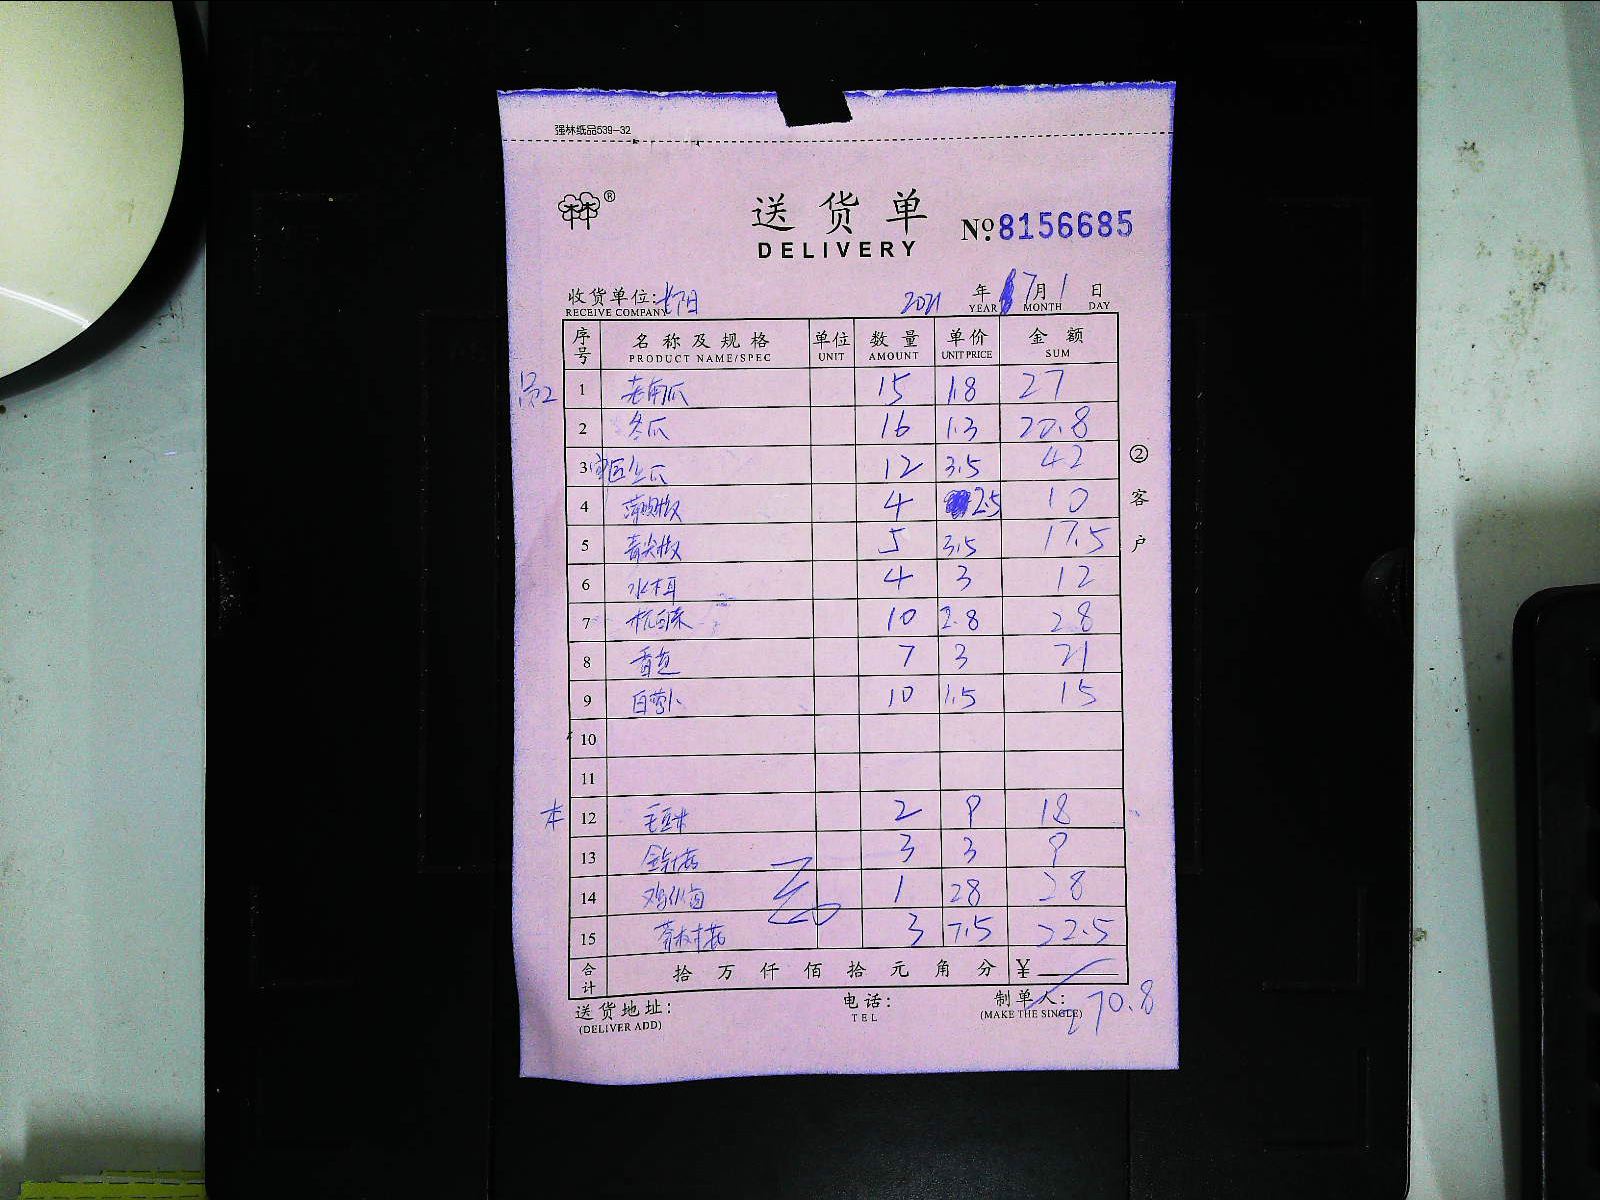 强林纸品539-32
林林®
送货单
DELIVERY
No.8156685
收货单位:长阳 2021年7月1日
RECEIVE COMPANY YEAR MONTH DAY
序号 名称及规格 单位 数量 单价 金额
PRODUCT NAME/SPEC UNIT AMOUNT UNIT PRICE SUM
1 老南瓜 15 1.8 27
2 冬瓜 16 1.3 20.8
3 丝瓜 12 3.5 42
4 薄皮椒 4 2.5 10
5 青尖椒 5 3.5 17.5
6 水木耳 4 3 12
7 杭白菜 10 2.8 28
8 香芝 7 3 21
9 白萝卜 10 1.5 15
10
11
本 12 毛豆米 2 9 18
13 金针菇 3 3 9
14 鸡枞菌 1 28 28
15 茶树菇 3 7.5 22.5
合计 拾万仟佰拾元角分 ¥
270.8
送货地址: 电话: 制单人:
(DELIVER ADD) TEL (MAKE THE SINGLE)
②客户